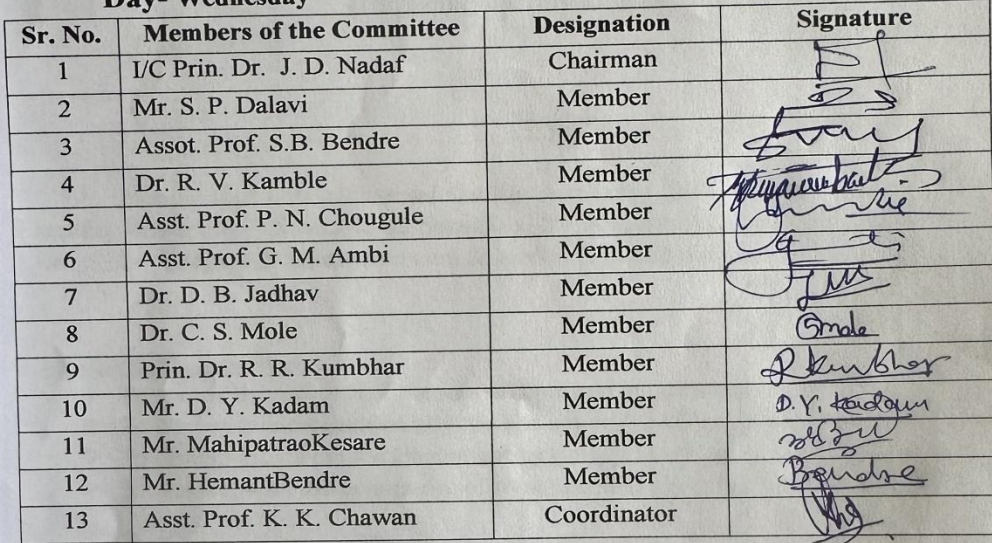 Day- Wednesday
Sr. No. Members of the Committee Designation Signature
1 I/C Prin. Dr. J. D. Nadaf Chairman
2 Mr. S. P. Dalavi Member
3 Assot. Prof. S.B. Bendre Member
4 Dr. R. V. Kamble Member
5 Asst. Prof. P. N. Chougule Member
6 Asst. Prof. G. M. Ambi Member
7 Dr. D. B. Jadhav Member
8 Dr. C. S. Mole Member
9 Prin. Dr. R. R. Kumbhar Member Rkumbhar
10 Mr. D. Y. Kadam Member D.Y. Kadam
11 Mr. MahipatraoKesare Member
12 Mr. HemantBendre Member Bendre
13 Asst. Prof. K. K. Chawan Coordinator